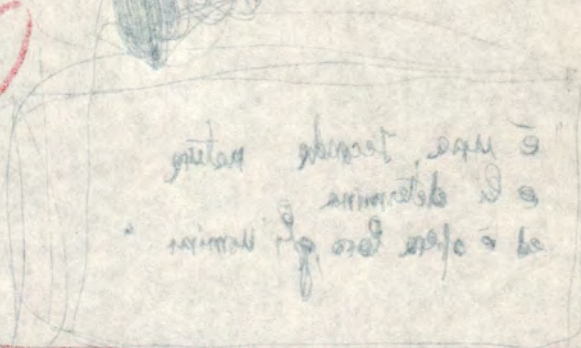 è una seconda natura
e li determina
ed è opera loro gli uomini "